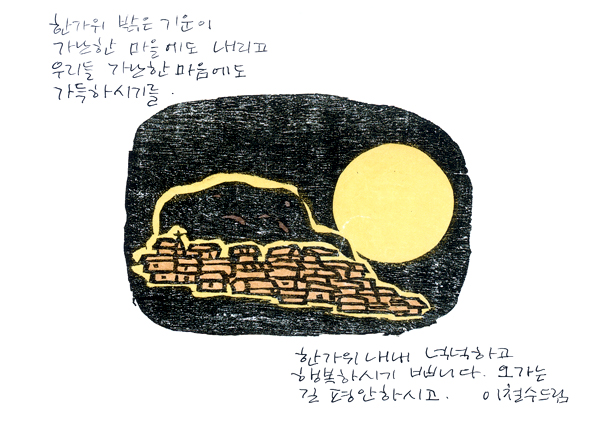 한가위 밝은 기운이
가난한 마을에도 내리고
우리들 가난한 마음에도
가득하시기를.
한가위 내내 넉넉하고
행복하시기 빕니다. 오가는
길 평안하시고. 이철수드림